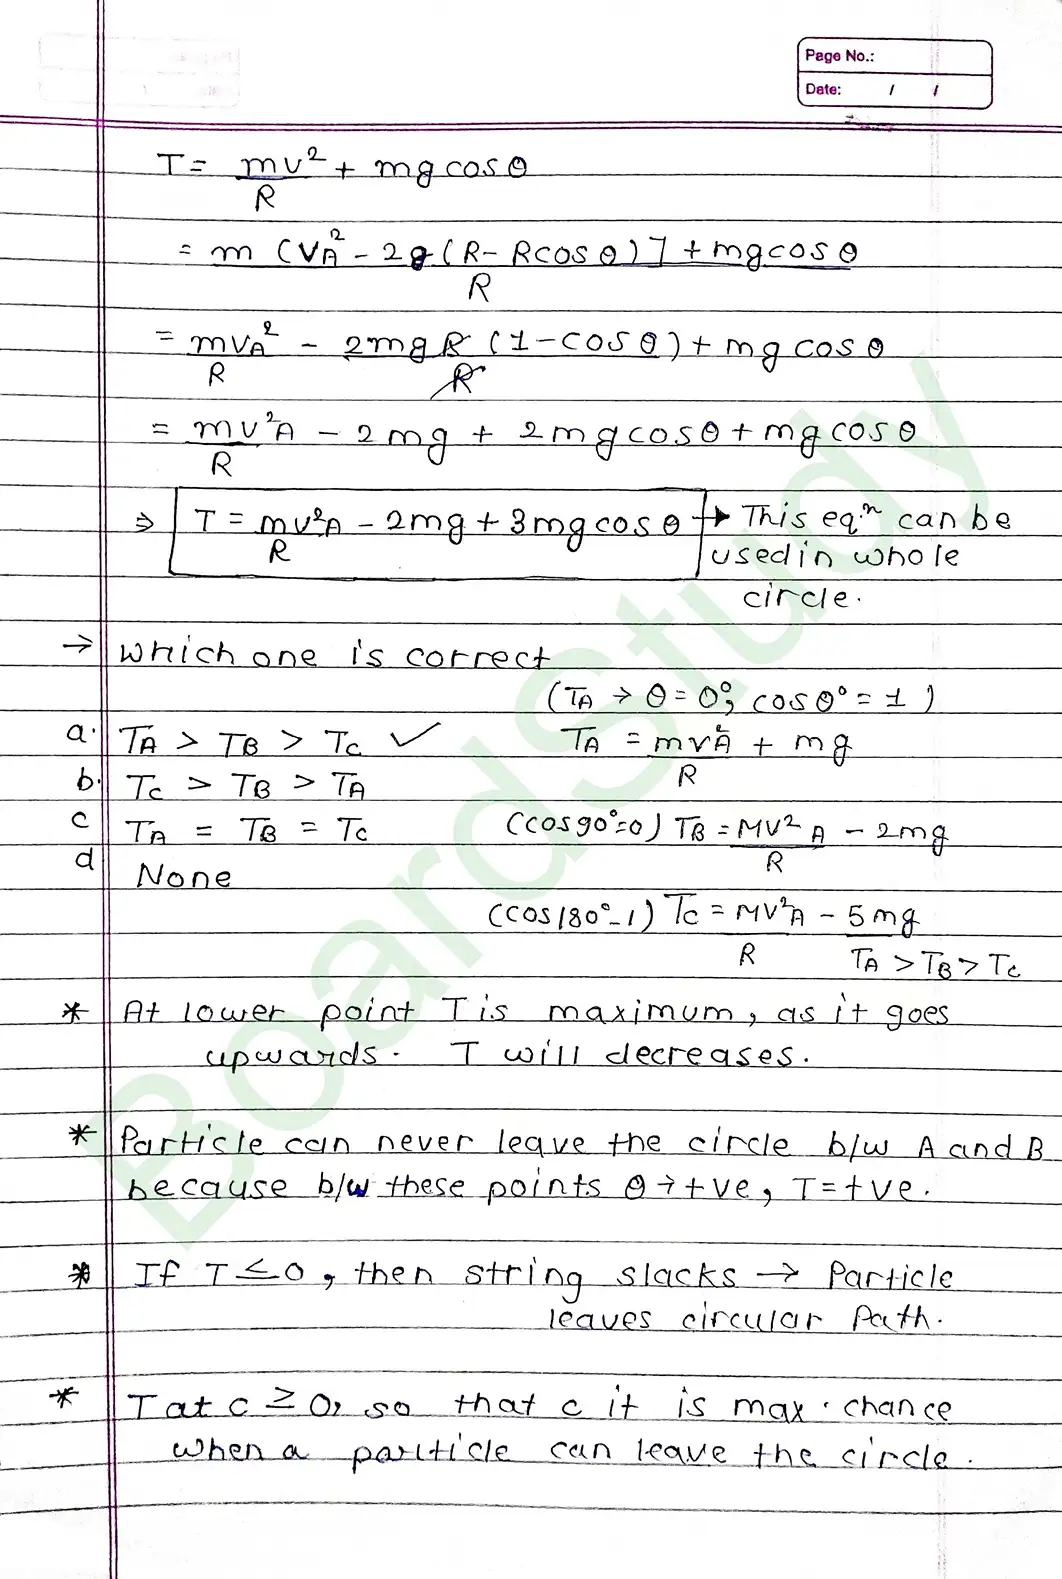 Page No.:
Date: / /
T = mv²/R + mg cos θ
= m (VA² - 2g (R - Rcos θ)]/R + mgcos θ
= mVA²/R - 2mgR (1 - cos θ)/R + mg cos θ
= mv²A/R - 2mg + 2mg cos θ + mg cos θ
⇒ T = mv²A/R - 2mg + 3mg cos θ → This eq.ⁿ can be
used in whole
circle.
→ Which one is correct
(TA → θ = 0°, cos 0° = 1)
a. TA > TB > TC ✓ TA = mvA²/R + mg
b. TC > TB > TA
c TA = TB = TC (cos90°=0) TB = MV²A/R - 2mg
d None
(cos180°-1) TC = MV²A/R - 5mg
TA > TB > TC
* At lower point T is maximum, as it goes
upwards. T will decreases.
* Particle can never leave the circle b/w A and B
because b/w these points θ → +ve, T = +ve.
* If T ≤ 0, then string slacks → Particle
leaves circular Path.
* T at C ≥ 0, so that c it is max. chance
when a particle can leave the circle.
BoardStudy